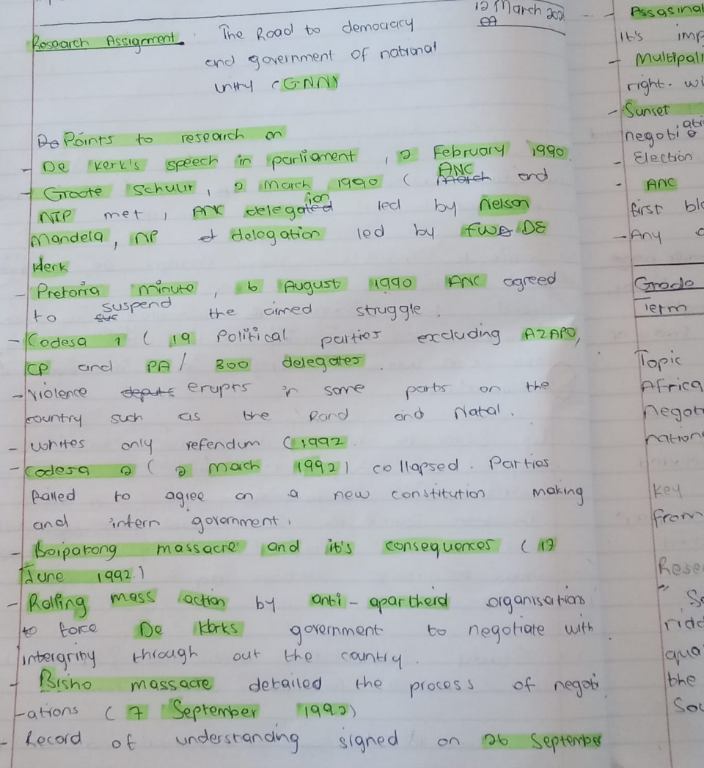 12 March 202
Research Assignment : The Road to democracy
and government of national
unity (GNN)
Points to research on
- De kerk's speech in parliament , 2 February 1990
- Groote Schuur, 2 March 1990 ( ANC and
NP met , ANC delegation led by Nelson
Mandela, NP delegation led by FW DE
klerk
- Pretoria minute , 6 August 1990 ANC agreed
to suspend the aimed struggle.
- Codesa 1 ( 19 Political parties excluding AZAPO,
CP and PA / 300 delegates
- violence erupts in some parts on the
country such as the Rand and Natal.
- whites only refendum (1992
- Codesa 2 ( 2 Mach 1992) collapsed. Parties
failed to agree on a new constitution making
and intern government.
- Boipatong massacre and it's consequences ( 17
June 1992.)
- Rolling mass action by anti - apartheid organisations
to force De klerks government to negotiate with
intergrity through out the country.
- Bisho massacre detailed the process of negoti
-ations ( 7 September 1992)
- Record of understanding signed on 26 September
- Assasinat
It's imp
- Multipali
right. wi
- Sunset
negoti ati
- Election
- ANC
first blo
- Any
Grade
Term
Topic
Africa
negot
nation
key
from
Rese
" So
ridd
qua
the
Sou